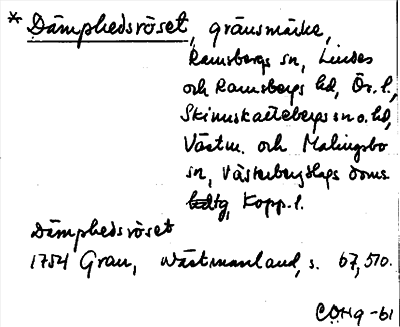 * Dämphedsröset, gränsmärke,
Ramsbergs sn, Lindes
och Ramsbergs hd, Ör. l.,
Skinnskattebergs sn o. hd,
Västm. och Malingsbo
sn, Västerbergslags doms
tg, Kopp. l.
Dämphedsröset
1754 Grau, Wästmanland, s. 67, 510.
COHq -61